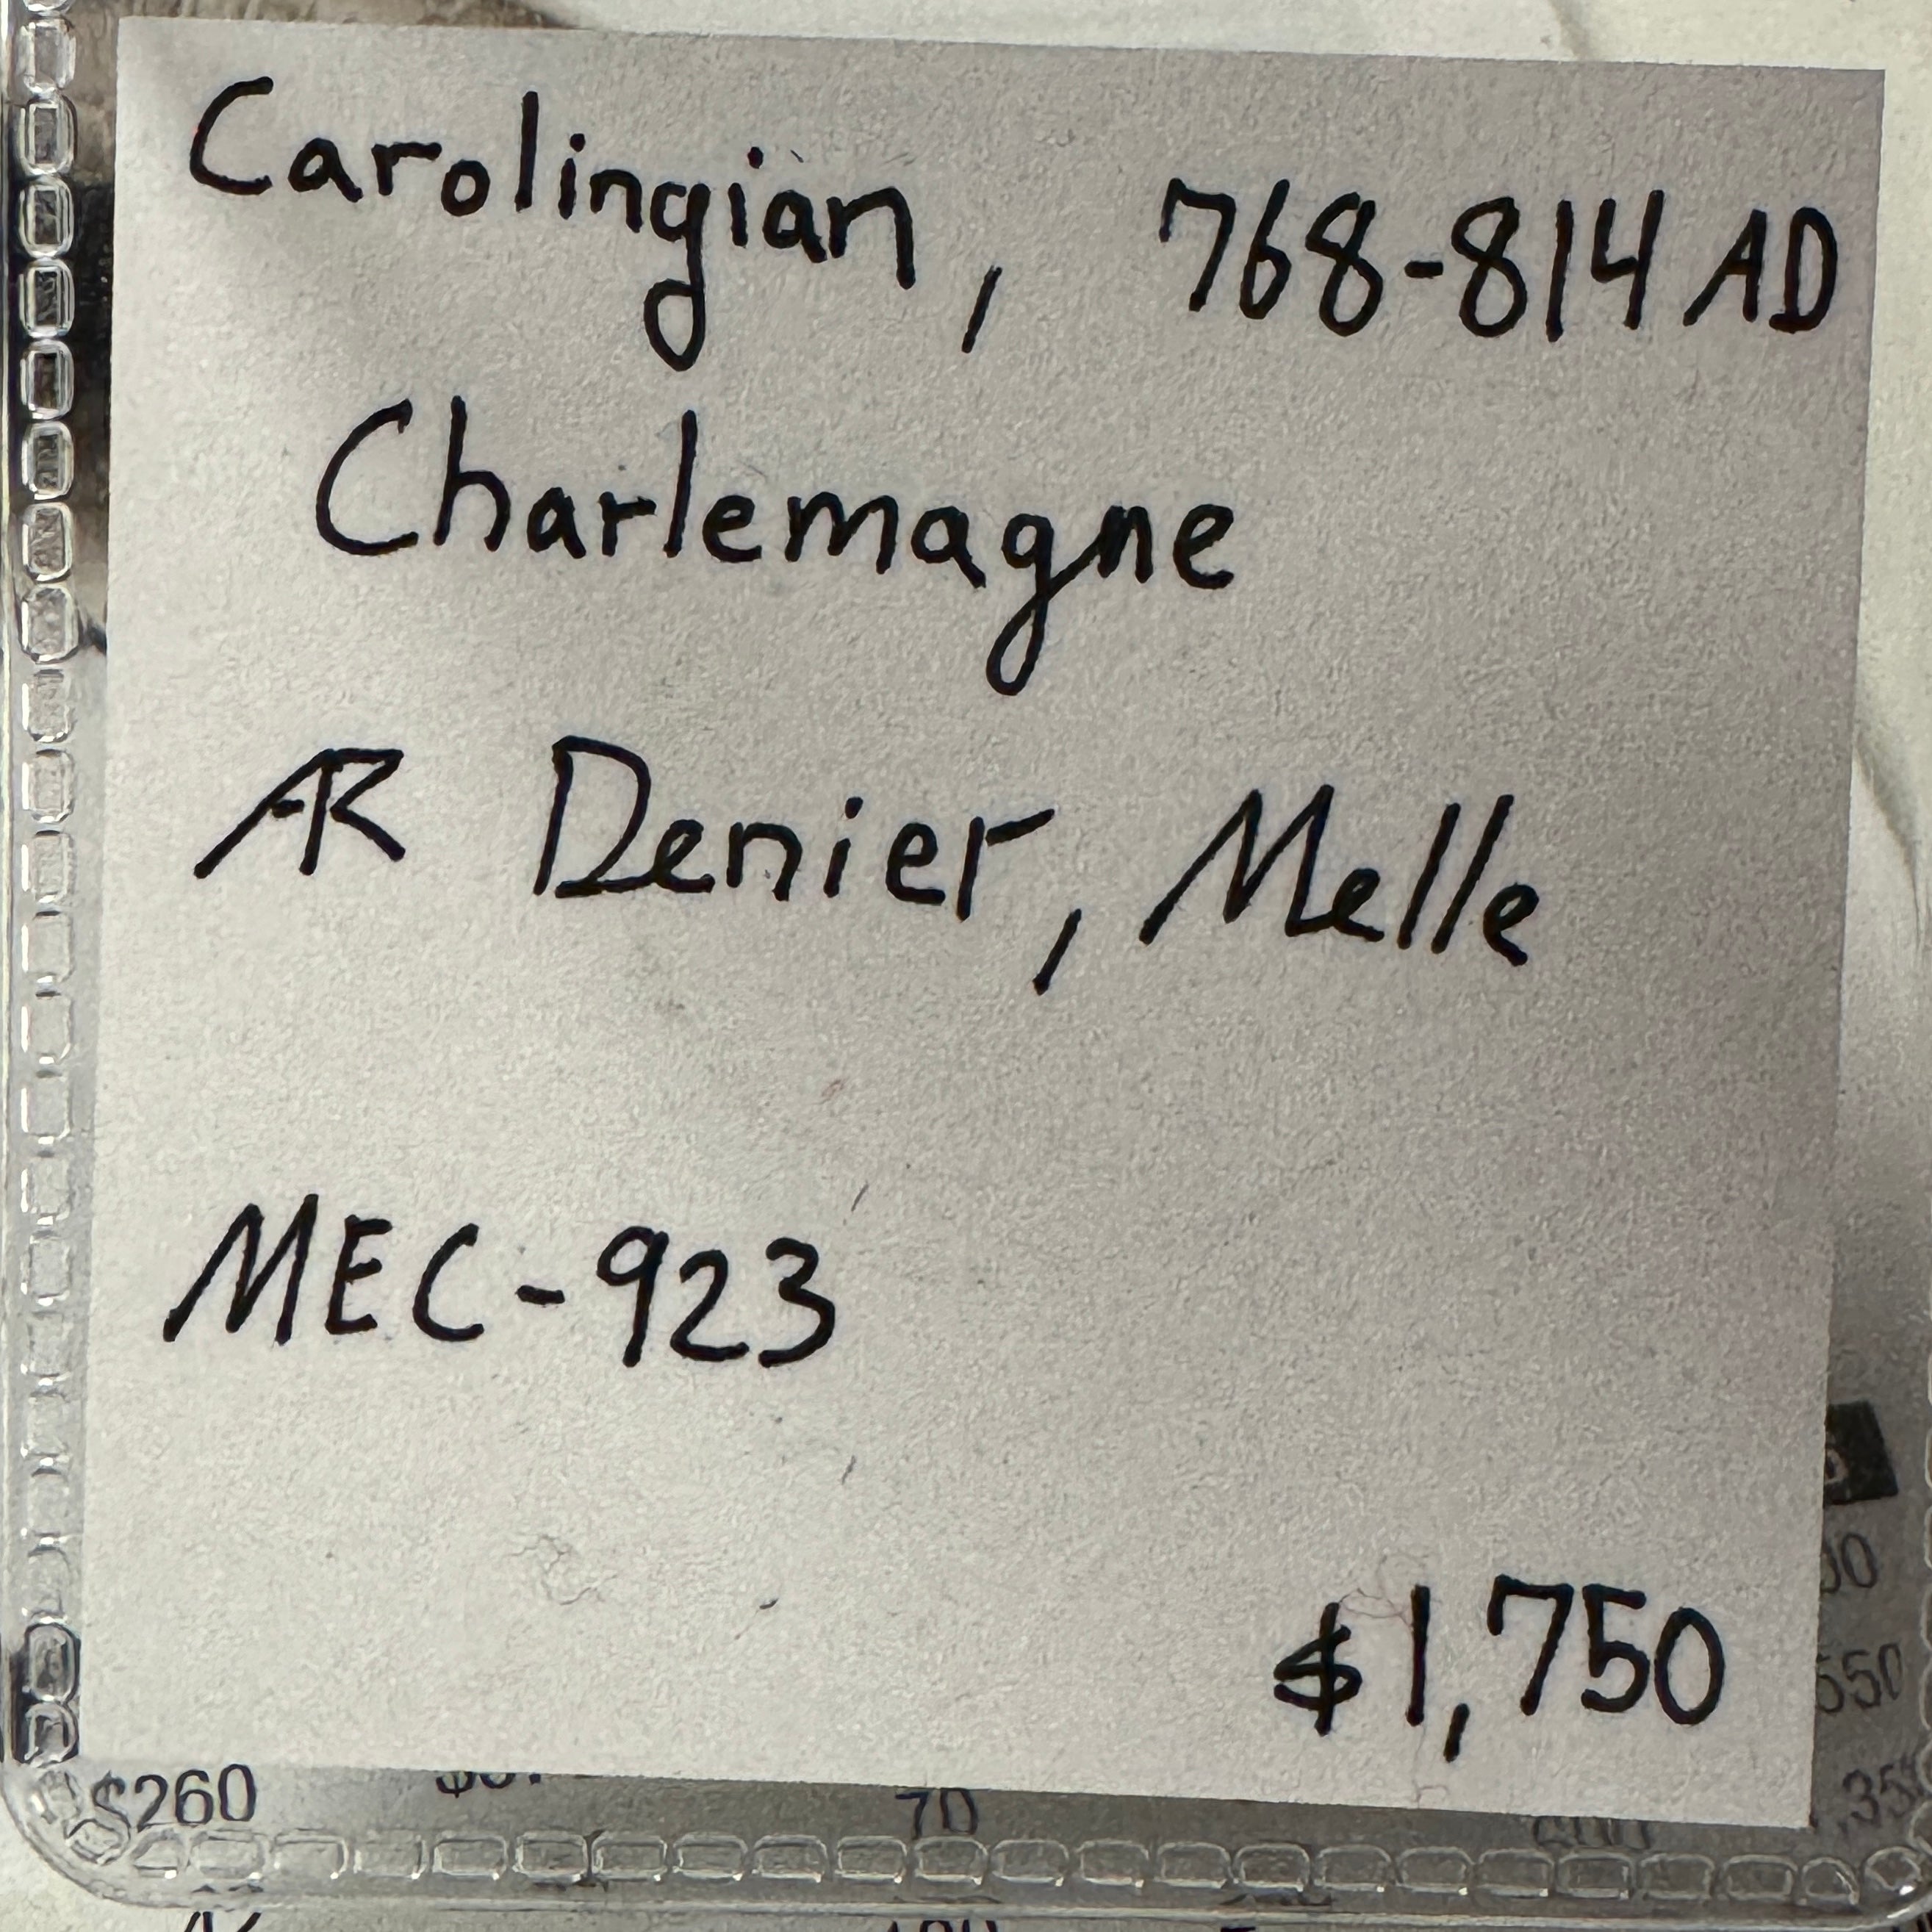 Carolingian, 768-814 AD
Charlemagne
AR Denier, Melle
MEC-923
$1,750
550
$260
70